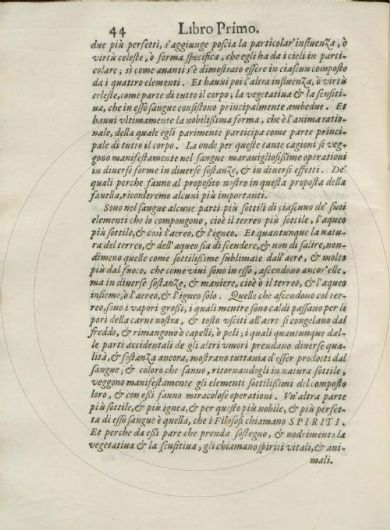 44 Libro Primo.
due più perfetti, s'aggiunge poscia la particolar'influenza, ò
virtù celeste, ò forma specifica, che egli ha da i cieli in parti-
colare; sì come ananti s'è dimostrato essere in ciascun composto
da i quattro elementi. Et hauui poi l'altra influenza, ò virtù
celeste, come parte di tutto il corpo; la vegetatiua & la sensiti-
ua, che in esso sangue consistono principalmente ambedue. Et
hauui vltimamente la nobilissima forma, che è l'anima ratio-
nale, della quale egli parimente participa come parte princi-
pale di tutto il corpo. La onde per queste tante cagioni si veg-
gono manifestamente nel sangue marauigliosissime operationi
in diuerse forme in diuerse sostanze, & in diuersi effetti. De'
quali perche fanno al proposito nostro in questa proposta della
fauella, ricorderemo alcuni più importanti.
Sono nel sangue alcune parti più sottili di ciascuno de' suoi
elementi che lo compongono, cioè il terreo più sottile, l'aqueo
più sottile, & così l'aereo, & l'igneo. Et quantunque la natu-
ra del terreo, & dell'aqueo sia di scendere, & non di salire, non-
dimeno quelle come sottilissime sublimate dall'aere, & molto
più dal fuoco, che come viui sono in esso, ascendono ancor'elle,
ma in diuerse sostanze, & maniere, cioè ò il terreo, & l'aqueo
insieme, ò l'aereo, & l'igneo solo. Quelle che ascendono col ter-
reo, sono i vapori grossi, i quali mentre sono caldi passano per li
pori della carne nostra, & tosto vsciti all'aere si congelano dal
freddo, & rimangono ò capelli, ò peli, i quali quantunque dal-
le parti accidentali de gli altri vmori prendano diuerse qua-
lità, & sostanza ancora, mostrano tuttauia d'esser prodotti dal
sangue; & coloro, che fanno, ritornandogli in natura sottile,
veggono manifestamente gli elementi sottilissimi del composto
loro, & con essi fanno miracolose operationi. Vn'altra parte
più sottile, & più ignea, & per questo più nobile, & più perfet-
ta di esso sangue è quella, che i Filosofi chiamano SPIRITI.
Et perche da essi pare che prenda sostegno, & nodrimento la
vegetatiua & la sensitiua, gli chiamano spiriti vitali, & ani-
mali.